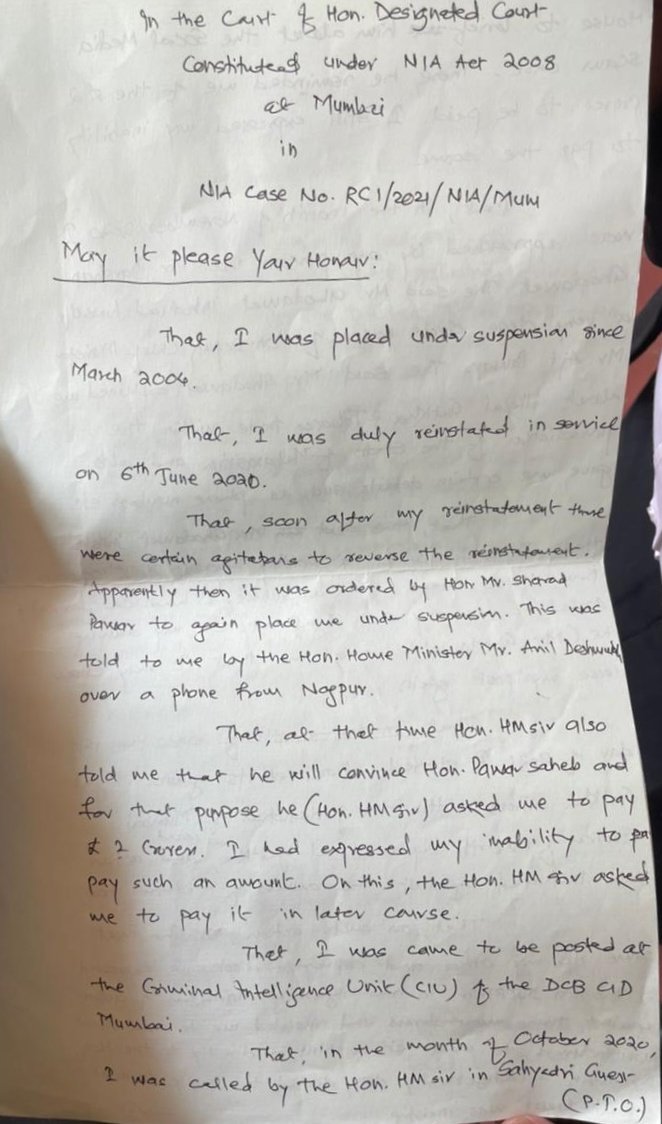 In the Court of Hon. Designated Court
Constituted under NIA Act 2008
at Mumbai
in
NIA Case No. RC1/2021/NIA/Mum
May it please Your Honour:
That, I was placed under suspension since
March 2004.
That, I was duly reinstated in service
on 6th June 2020.
That, soon after my reinstatement there
were certain agitations to reverse the reinstatement.
Apparently then it was ordered by Hon Mr. Sharad
Pawar to again place me under suspension. This was
told to me by the Hon. Home Minister Mr. Anil Deshmukh
over a phone from Nagpur.
That, at that time Hon. HM sir also
told me that he will convince Hon. Pawar saheb and
for that purpose he (Hon. HM sir) asked me to pay
₹ 2 Crores. I had expressed my inability to pa
pay such an amount. On this, the Hon. HM sir asked
me to pay it in later course.
That, I was came to be posted at
the Criminal Intelligence Unit (CIU) of the DCB CID
Mumbai.
That, in the month of October 2020,
I was called by the Hon. HM sir in Sahyadri Guest
(P.T.O.)